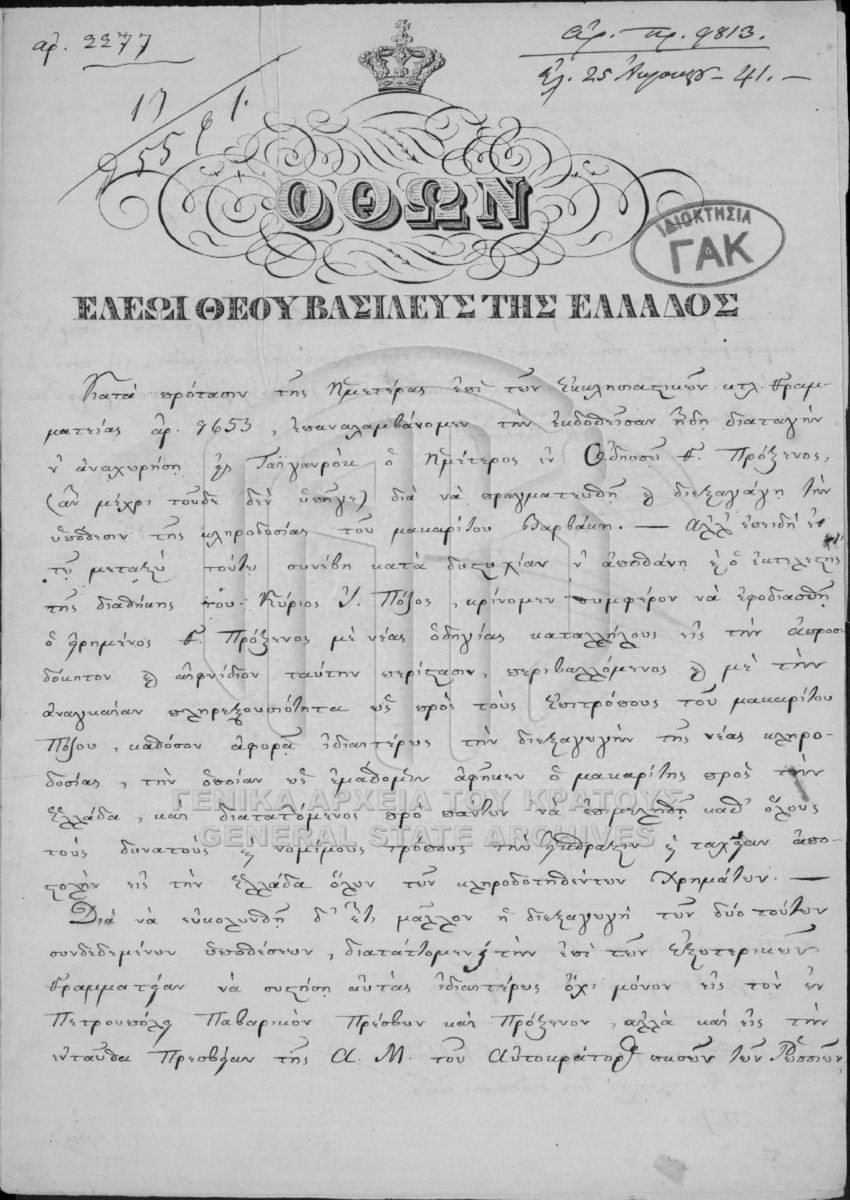 αρ. 2277
Αρ. πρ. 9813.
Ελ. 25 41.—
17
ΟΘΩΝ
ΙΔΙΟΚΤΗΣΙΑ
ΓΑΚ
ΕΛΕΩΙ ΘΕΟΥ ΒΑΣΙΛΕΥΣ ΤΗΣ ΕΛΛΑΔΟΣ
Κατὰ πρότασιν τῆς Ἡμετέρας ἐπὶ τῶν Ἐκκλησιαστικῶν κτλ. Γραμ-
ματείας ἀρ. 9653, ἐπαναλαμβάνομεν τὴν ἐκδοθεῖσαν ἤδη διαταγὴν
ν' ἀναχωρήσῃ εἰς Ταϊγανρὸκ ὁ Ἡμέτερος ἐν Ὀδησσῷ Γ. Πρόξενος,
(ἂν μέχρι τοῦδε δὲν ὑπῆγε) διὰ νὰ πραγματευθῇ καὶ διεξαγάγῃ τὴν
ὑπόθεσιν τῆς κληροδοσίας τοῦ μακαρίτου Βαρβάκη. — Ἀλλ' ἐπειδὴ ἐν
τῷ μεταξὺ τούτῳ συνέβη κατὰ δυστυχίαν ν' ἀποθάνῃ καὶ ὁ ἐκτελεστὴς
τῆς διαθήκης του Κύριος Ι. Πόζος, κρίνομεν συμφέρον νὰ ἐφοδιασθῇ
ὁ εἰρημένος Γ. Πρόξενος μὲ νέας ὁδηγίας καταλλήλους εἰς τὴν ἀπροσ-
δόκητον καὶ αἰφνίδιον ταύτην περίστασιν, περιβαλλόμενος καὶ μὲ τὴν
ἀναγκαίαν πληρεξουσιότητα ὡς πρὸς τοὺς Ἐπιτρόπους τοῦ μακαρίτου
Πόζου, καθόσον ἀφορᾷ ἰδιαιτέρως τὴν διεξαγωγὴν τῆς νέας κληρο-
δοσίας, τὴν ὁποίαν ὡς ἐμάθομεν ἀφῆκεν ὁ μακαρίτης πρὸς τὴν
Ἑλλάδα, καὶ διαταττόμενος πρὸ πάντων νὰ ἐπιμεληθῇ καθ' ὅλους
τοὺς δυνατοὺς καὶ νομίμους τρόπους τὴν εἴσπραξιν καὶ ταχεῖαν ἀπο-
στολὴν εἰς τὴν Ἑλλάδα ὅλων τῶν κληροδοτηθέντων Χρημάτων. —
ΓΕΝΙΚΑ ΑΡΧΕΙΑ ΤΟΥ ΚΡΑΤΟΥΣ
GENERAL STATE ARCHIVES
Διὰ νὰ εὐκολυνθῇ δ' ἔτι μᾶλλον ἡ διεξαγωγὴ τῶν δύο τούτων
συνδεδεμένων ὑποθέσεων, διατάττομεν τὴν ἐπὶ τῶν Ἐξωτερικῶν
Γραμματείαν νὰ συστήσῃ αὐτὰς ἰδιαιτέρως ὄχι μόνον εἰς τὸν ἐν
Πετρουπόλει Βαβαρικὸν Πρέσβυν καὶ Πρόξενον, ἀλλὰ καὶ εἰς τὴν
ἐνταῦθα Πρεσβείαν τῆς Α. Μ. τοῦ Αὐτοκράτορος πασῶν τῶν Ῥωσσιῶν,